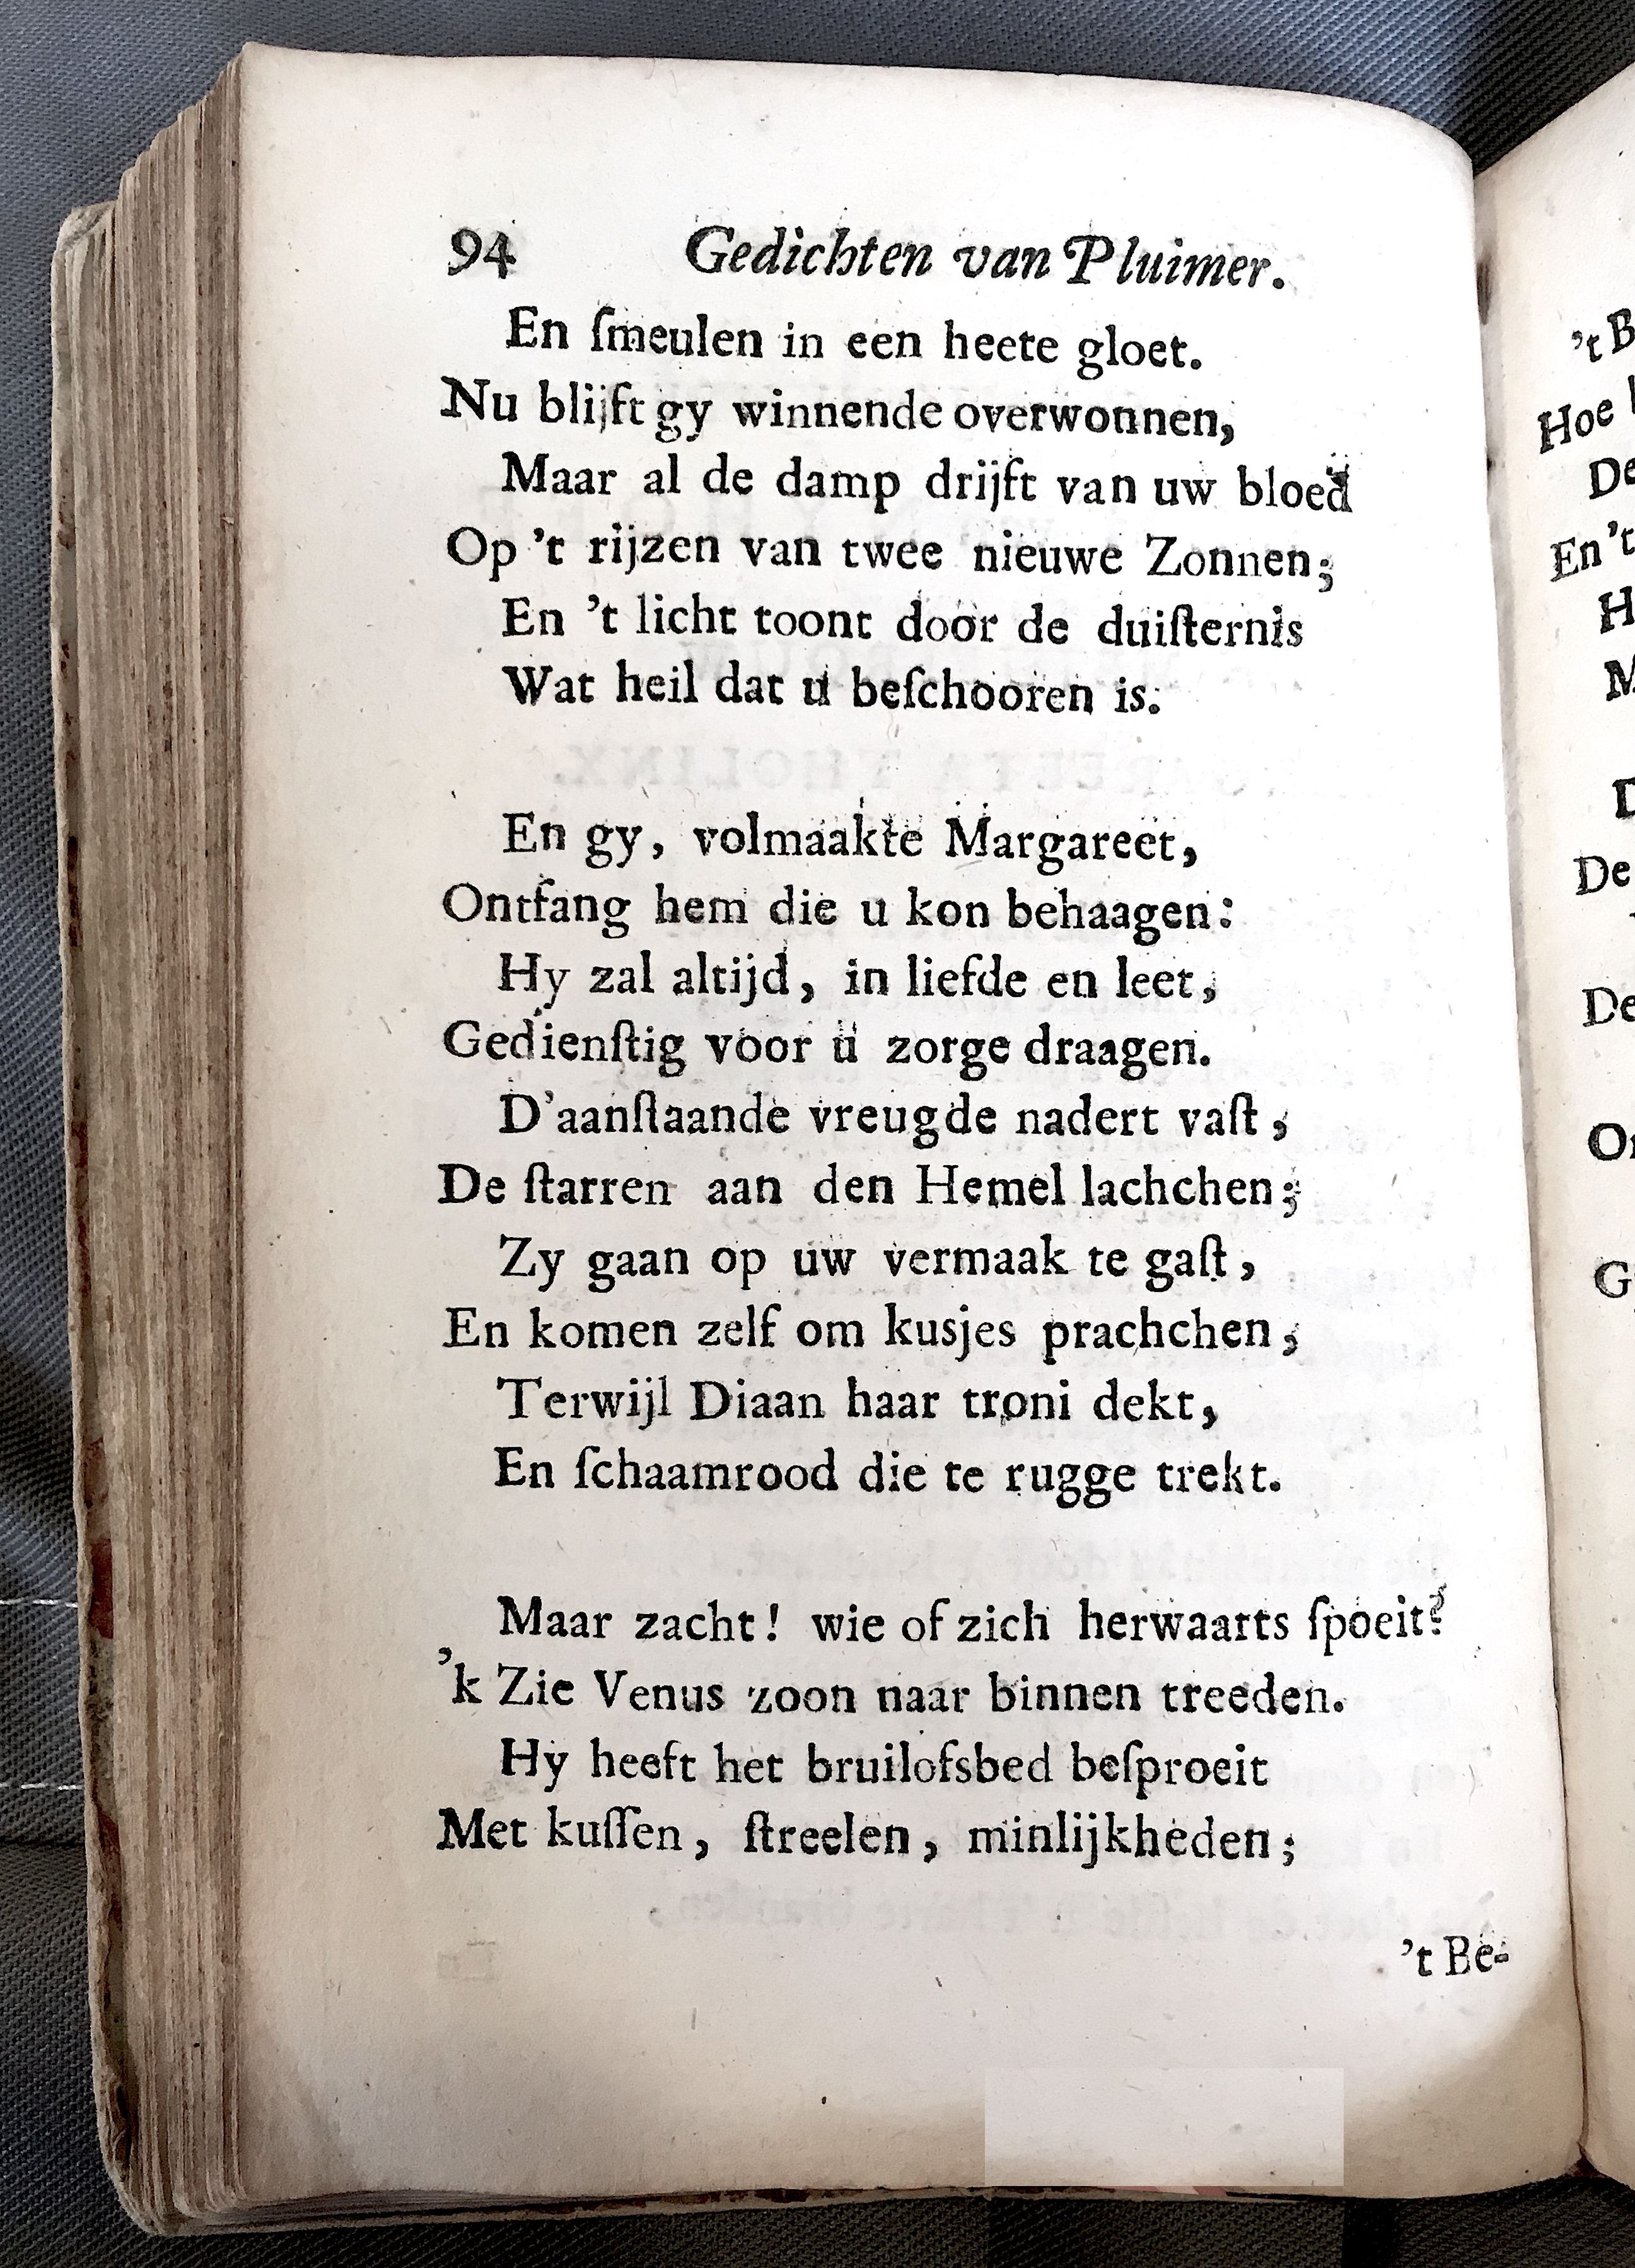 94 Gedichten van Pluimer.
En ſmeulen in een heete gloet.
Nu blijft gy winnende overwonnen,
Maar al de damp drijft van uw bloed
Op 't rijzen van twee nieuwe Zonnen;
En 't licht toont door de duiſternis
Wat heil dat u beſchooren is.
En gy, volmaakte Margareet,
Ontfang hem die u kon behaagen:
Hy zal altijd, in liefde en leet,
Gedienſtig voor u zorge draagen.
D'aanſtaande vreugde nadert vaſt,
De ſtarren aan den Hemel lachchen;
Zy gaan op uw vermaak te gaſt,
En komen zelf om kusjes prachchen,
Terwijl Diaan haar troni dekt,
En ſchaamrood die te rugge trekt.
Maar zacht! wie of zich herwaarts ſpoeit?
'k Zie Venus zoon naar binnen treeden.
Hy heeft het bruilofsbed beſproeit
Met kuſſen, ſtreelen, minlijkheden;
't Be-
't B
Hoe
De
En 't
H
M
D
De
De
On
G